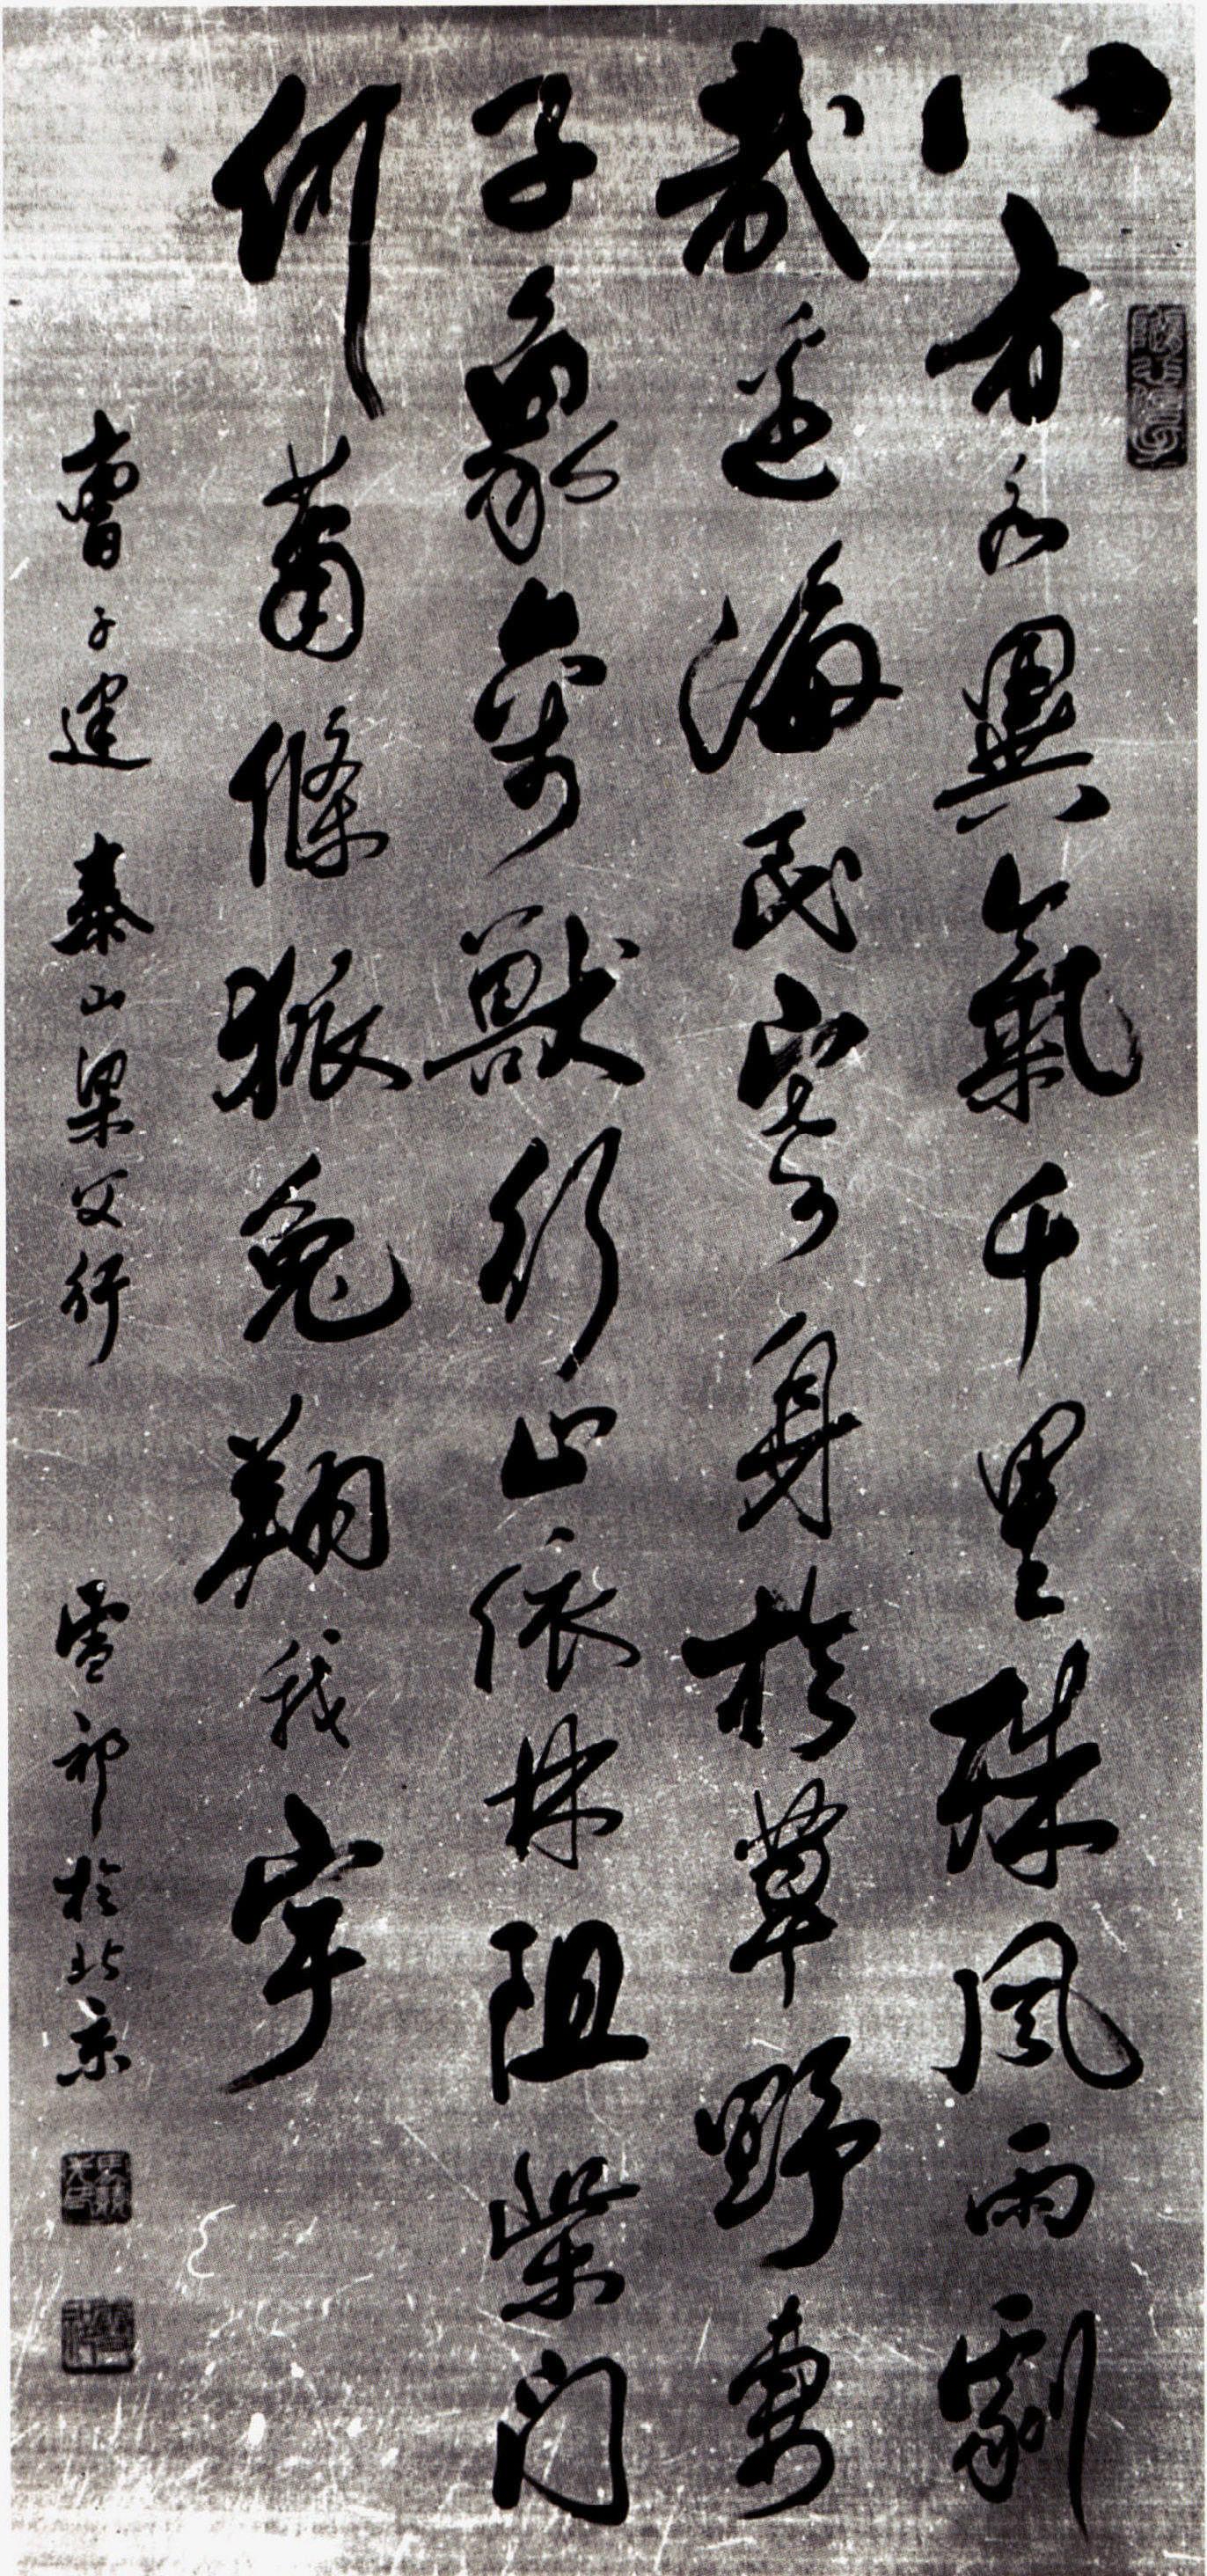 八方各異氣千里殊風雨劇
哉邊海民寄身於草野妻
子象禽獸行止依林阻柴門
何蕭條狐兔翔我宇
曹子建 泰山梁父行 雪祁於北京